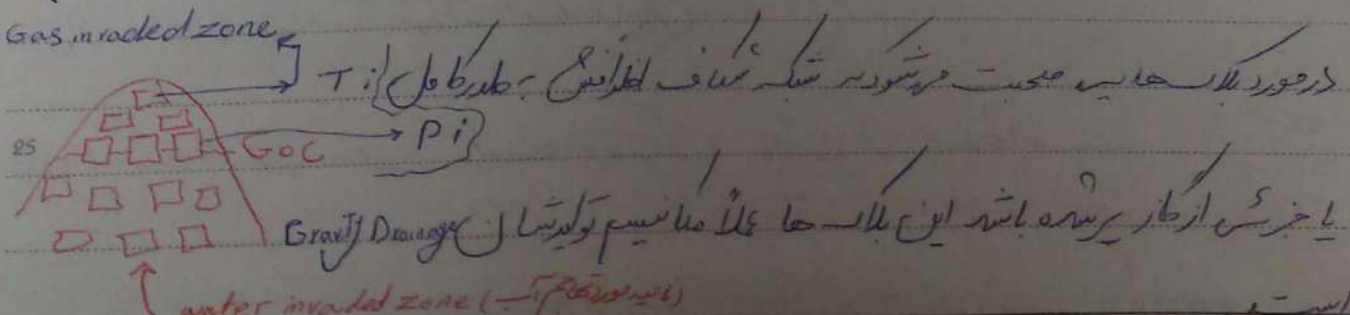 Gas invaded zone
در مورد بلاک هایی صحبت می شود که شبکه شکاف اطرافش به طور کامل Ti
Pi
25 GOC
یا جزئی از گاز پر شده باشد این بلاک ها عملاً مکانیسم تولیدشان Gravity Drainage
water invaded zone (ناحیه مورد تهاجم آب)
است